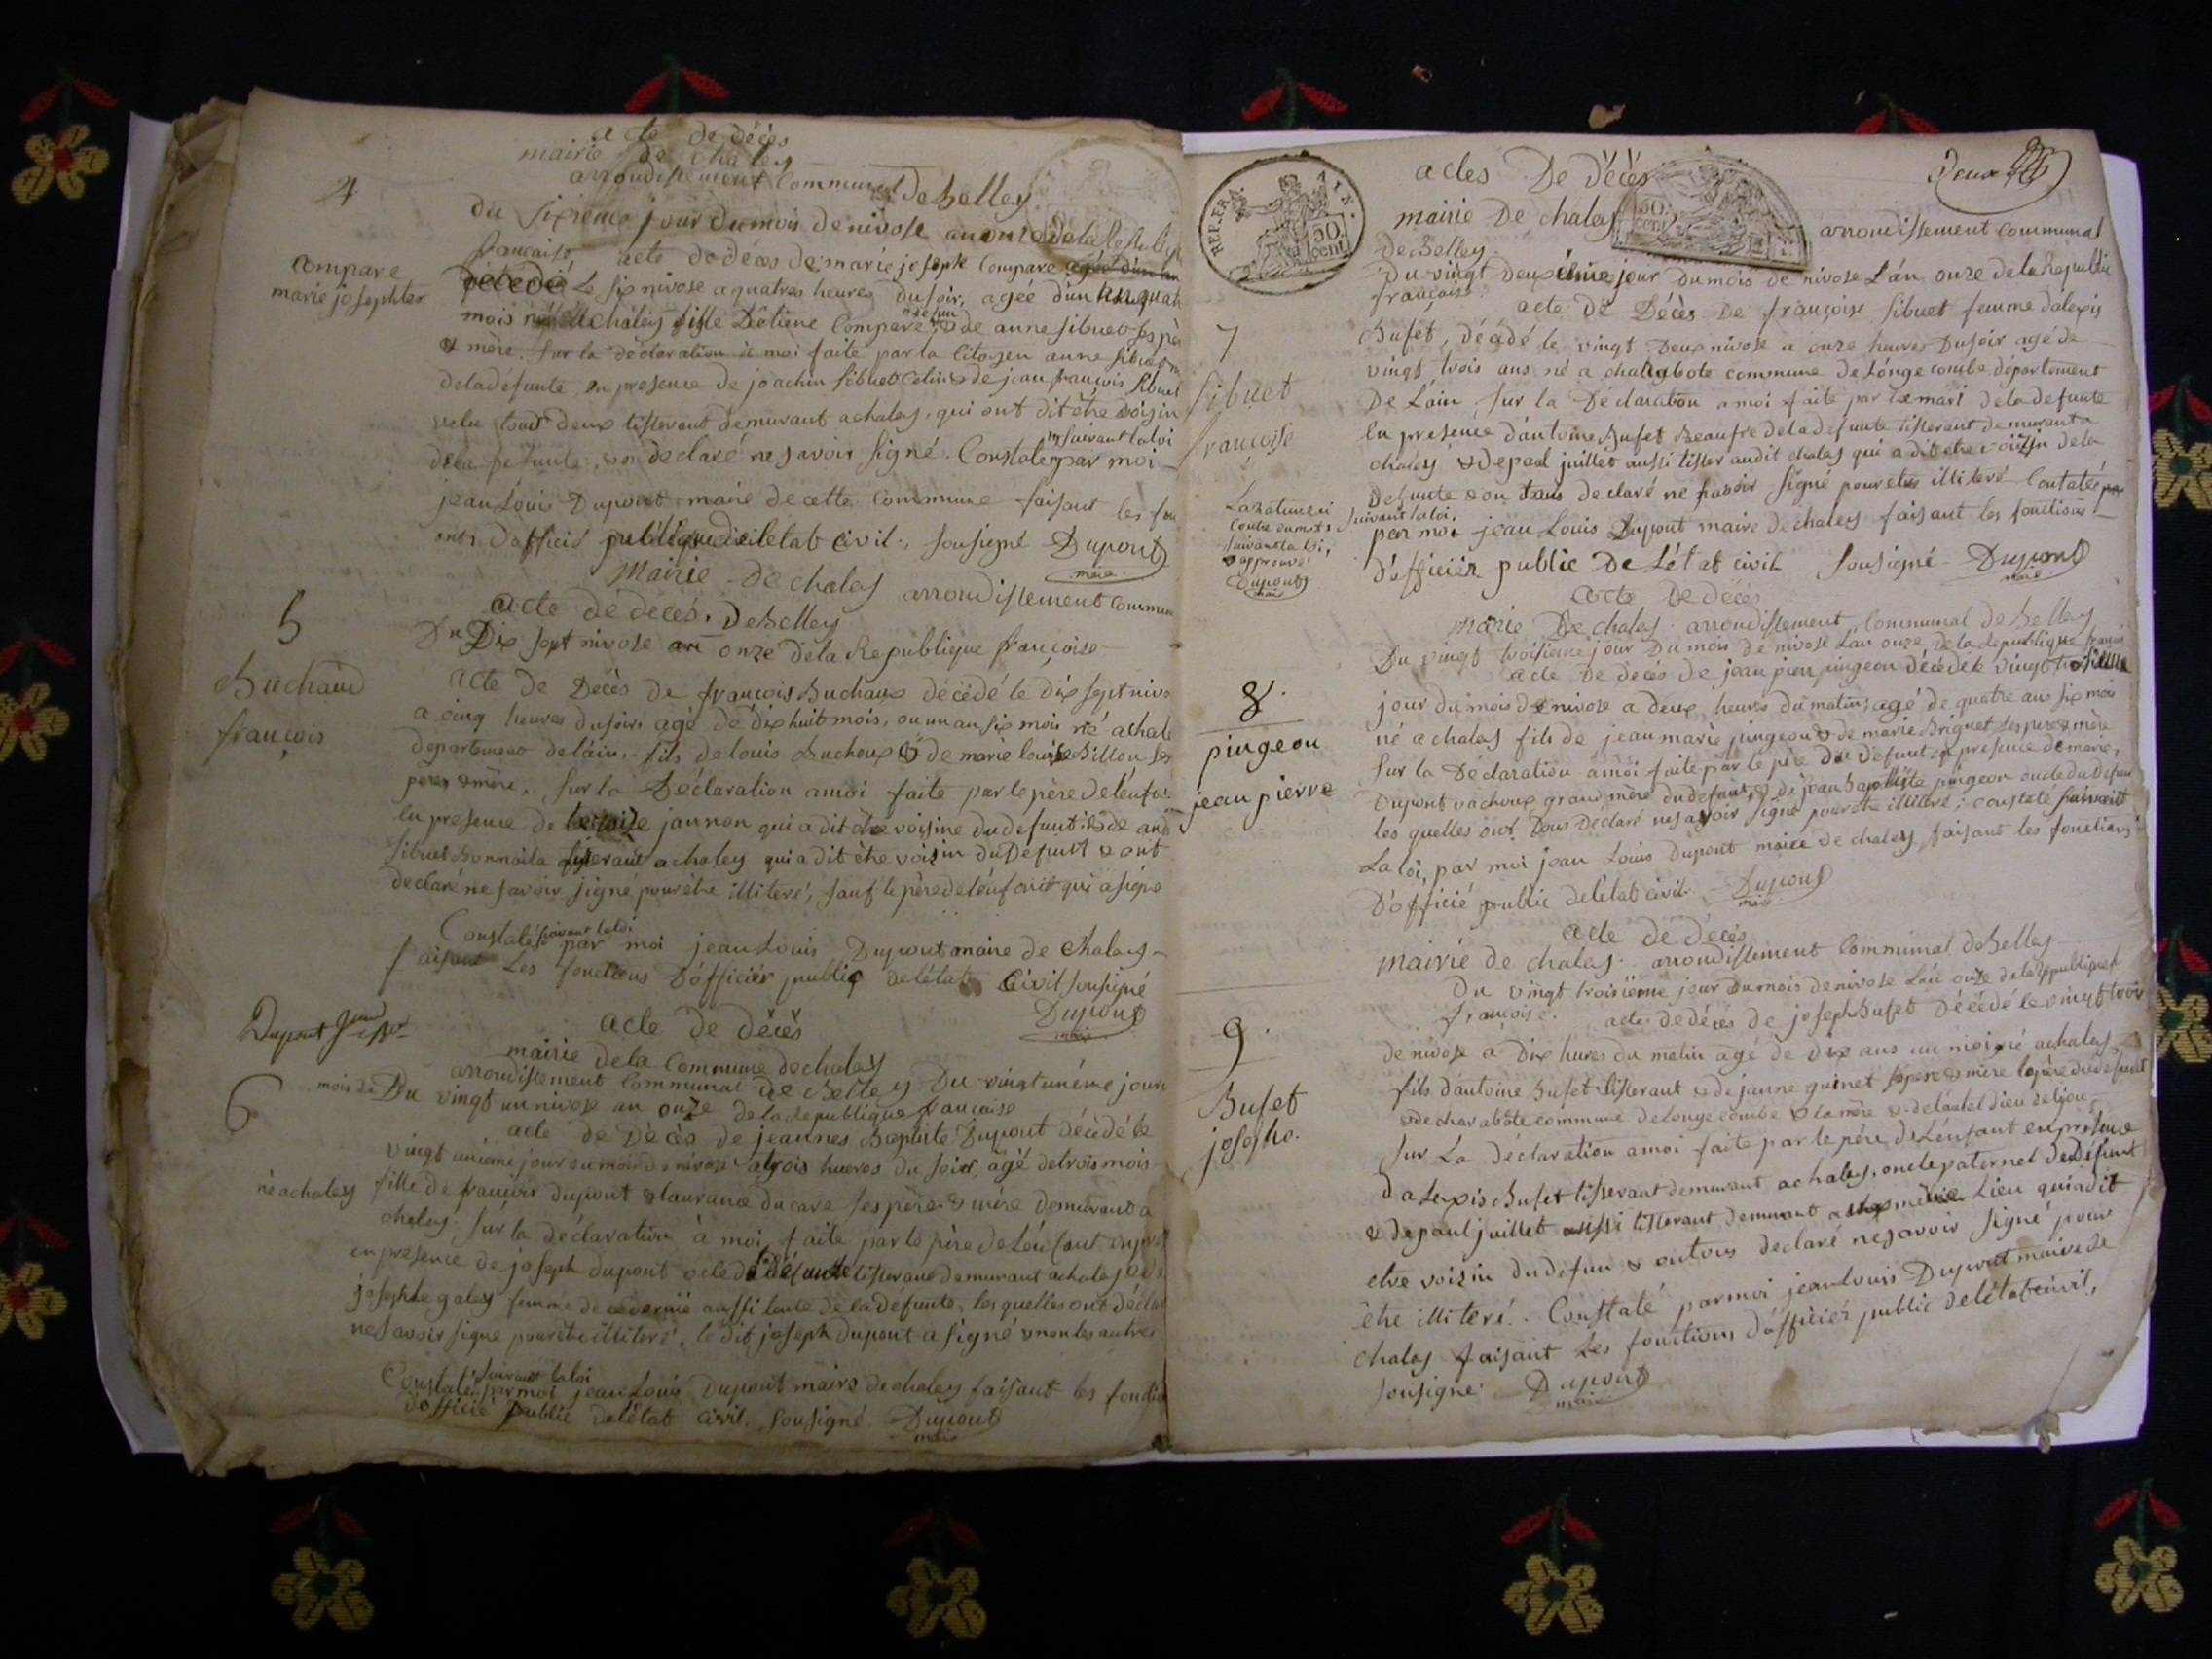 4
acte de décès
mairie de chaley
arrondissement Communal de Belley
du sixieme jour du mois de nivose an onze de la Republiq
francaise, acte de décès de marie joseph Compare
Compare
marie josephter
décédé le six nivose a quatres heures du soir, agée d'un an quatr
mois née a chaley fille Détiene Compare défun & de anne sibuet ses pèr
& mère. Sur la déclaration à moi faite par la Citoyen anne sibuet m
de la défunte, en presence de joachin Sibuet Colin & de jean françois Sibuet
velu tous deux tisserant demurant a chaley, qui ont dit être voizin
de la defunte, & on declaré ne savoir signé. Constaté suivant la loi par moi
jean Louis Dupont maire de cette Commune faisant les fon
ons d'officié publique de l'état Civil, sousigné Dupont
maire
Mairie de chaley arrondissement Commun
5
acte de décès. de Belley
Du Dix sept nivose an onze de la Republique françoise
Buchaud
françois
acte de Decès de françois Buchaux décédé le dix sept nivo
a cinq heures du soir agé de dix huit mois, ou un an six mois né a chale
departement de l'ain, fils de louis Buchoux & de marie louise Billon ses
peres & mère. Sur la Déclaration a moi faite par le père de l'enfa
en presence de jannon qui a dit être voisine du défunt & de and
sibuet Bonnaila tisserant a chaley qui a dit être voizin du Defunt & ont
declaré ne savoir signé pour être illiteré, sauf le père de l'enfant qui a signé
Constaté suivant la loi par moi jean Louis Dupont maire de Chaley
faisant Les fonctions D'officier public de l'état Civil sousigné
Dupont
maire
Dupont
acte de décès
mairie de la Commune de chaley
arrondissement Communal de Belley Du vingt unéme jour
6
mois de Du vingt un nivose an onze de la Republique française
acte de Décès de jeannes Baptiste Dupont décédé le
vingt unième jour du mois de nivose a trois hueres du soir, agé de trois mois
né a chaley fille de françois dupont & laurance ducare ses père & mère demurant a
chaley. Sur la déclaration à moi faite par le père de l'enfant en pres
en presence de joseph dupont ocle de la défunte tisserant demurant a chaley & de
josephte galey femme de aussi tente de la défunte, les quelles ont déclar
ne savoir signe pour être illiteré, le dit joseph dupont a signé & non les autres
Constaté suivant la loi par moi jean Louis Dupont maire de chaley faisant les fonctio
d'officié public de l'état civil. Sousigné Dupont
maire
REP. FRA. AIN.
50. cent.
50. cent.
Deux
actes De Décès
mairie De chaley arrondissement Communal
de Belley.
Du vingt Deuxéime jour du mois de nivose L'an onze de la Republi
françoise.
7
acte de Décès De françoise Sibuet femme d'alexis
Sibuet
françoise
Bufet, décédé le vingt Deux nivose a onze heures du soir agé de
vingt trois ans né a charabote commune de Longe combe, département
De L'ain, Sur la Déclaration a moi faite par le mari de la defunte
en presence d'antoine Bufet Beaufre de la defunte tisserant demurant a
chaley & de paul juillet aussi tisser audit chaley qui a dit etre voizin de la
Defunte & on tous declaré ne savoir signé pour etre illiteré Contatée
La rature ci
contre
suivant la loi,
approuvé
Dupont
maire
suivant la loi,
par moi jean Louis Dupont maire de chaley faisant les fonctions
d'officiér public De L'état civil Sousigné Dupont
maire
acte de décès
mairie De chaley. arrondissement Communal de Belley
Du vingt troisieme jour Du mois de nivose L'an onze de la Republique françois
8.
pingeon
jean pierre
acte de décès de jean pierre pingeon décédé le vingt troisieme
jour du mois de nivose a deux heures du matin, agé de quatre ans six mois
né a chaley fils de jean marie pingeon & de marie Brignet ses pere & mère
Sur la Déclaration a moi faite par le père du défunt en presence de marie,
Dupont vachoux grand mère du defunt, & de jean Baptiste pingeon oncle du Defun
les quelles ont tous Declaré ne savoir signé pour être illiteré; constaté suivant
La loi, par moi jean Louis Dupont maire de chaley, faisant les fonctions
D'officié public de l'état civil. Dupont
maire
acte de décès
mairie de chaley. arrondissement Communal de Belley
Du vingt troisième jour du mois de nivose L'an onze de la Republique
françoise.
9.
Bufet
joseph.
acte de décès de joseph Bufet Décédé le vingt trois
de nivose a Dix hures du matin agé de Dix ans un moi né a chaley,
fils d'antoine Bufet tisserant & de janne guinet se pere & mère le père du defunt
& de charabote commune de Longe combe & la mère & de l'autel dieu de lion,
Sur La déclaration a moi faite par le père De L'enfant en presence
D'alexis Bufet tisserant demurant a chaley, oncle paternel du défunt
& de paul juillet aussi tisserant demurant a même Lieu qui a dit
être voizin du défun & on tous declaré ne savoir signé pour
être illiteré. Constaté par moi jean louis Dupont maire de
chaley faisant Les fonctions d'officier public de l'état civil,
sousigné. Dupont
maire